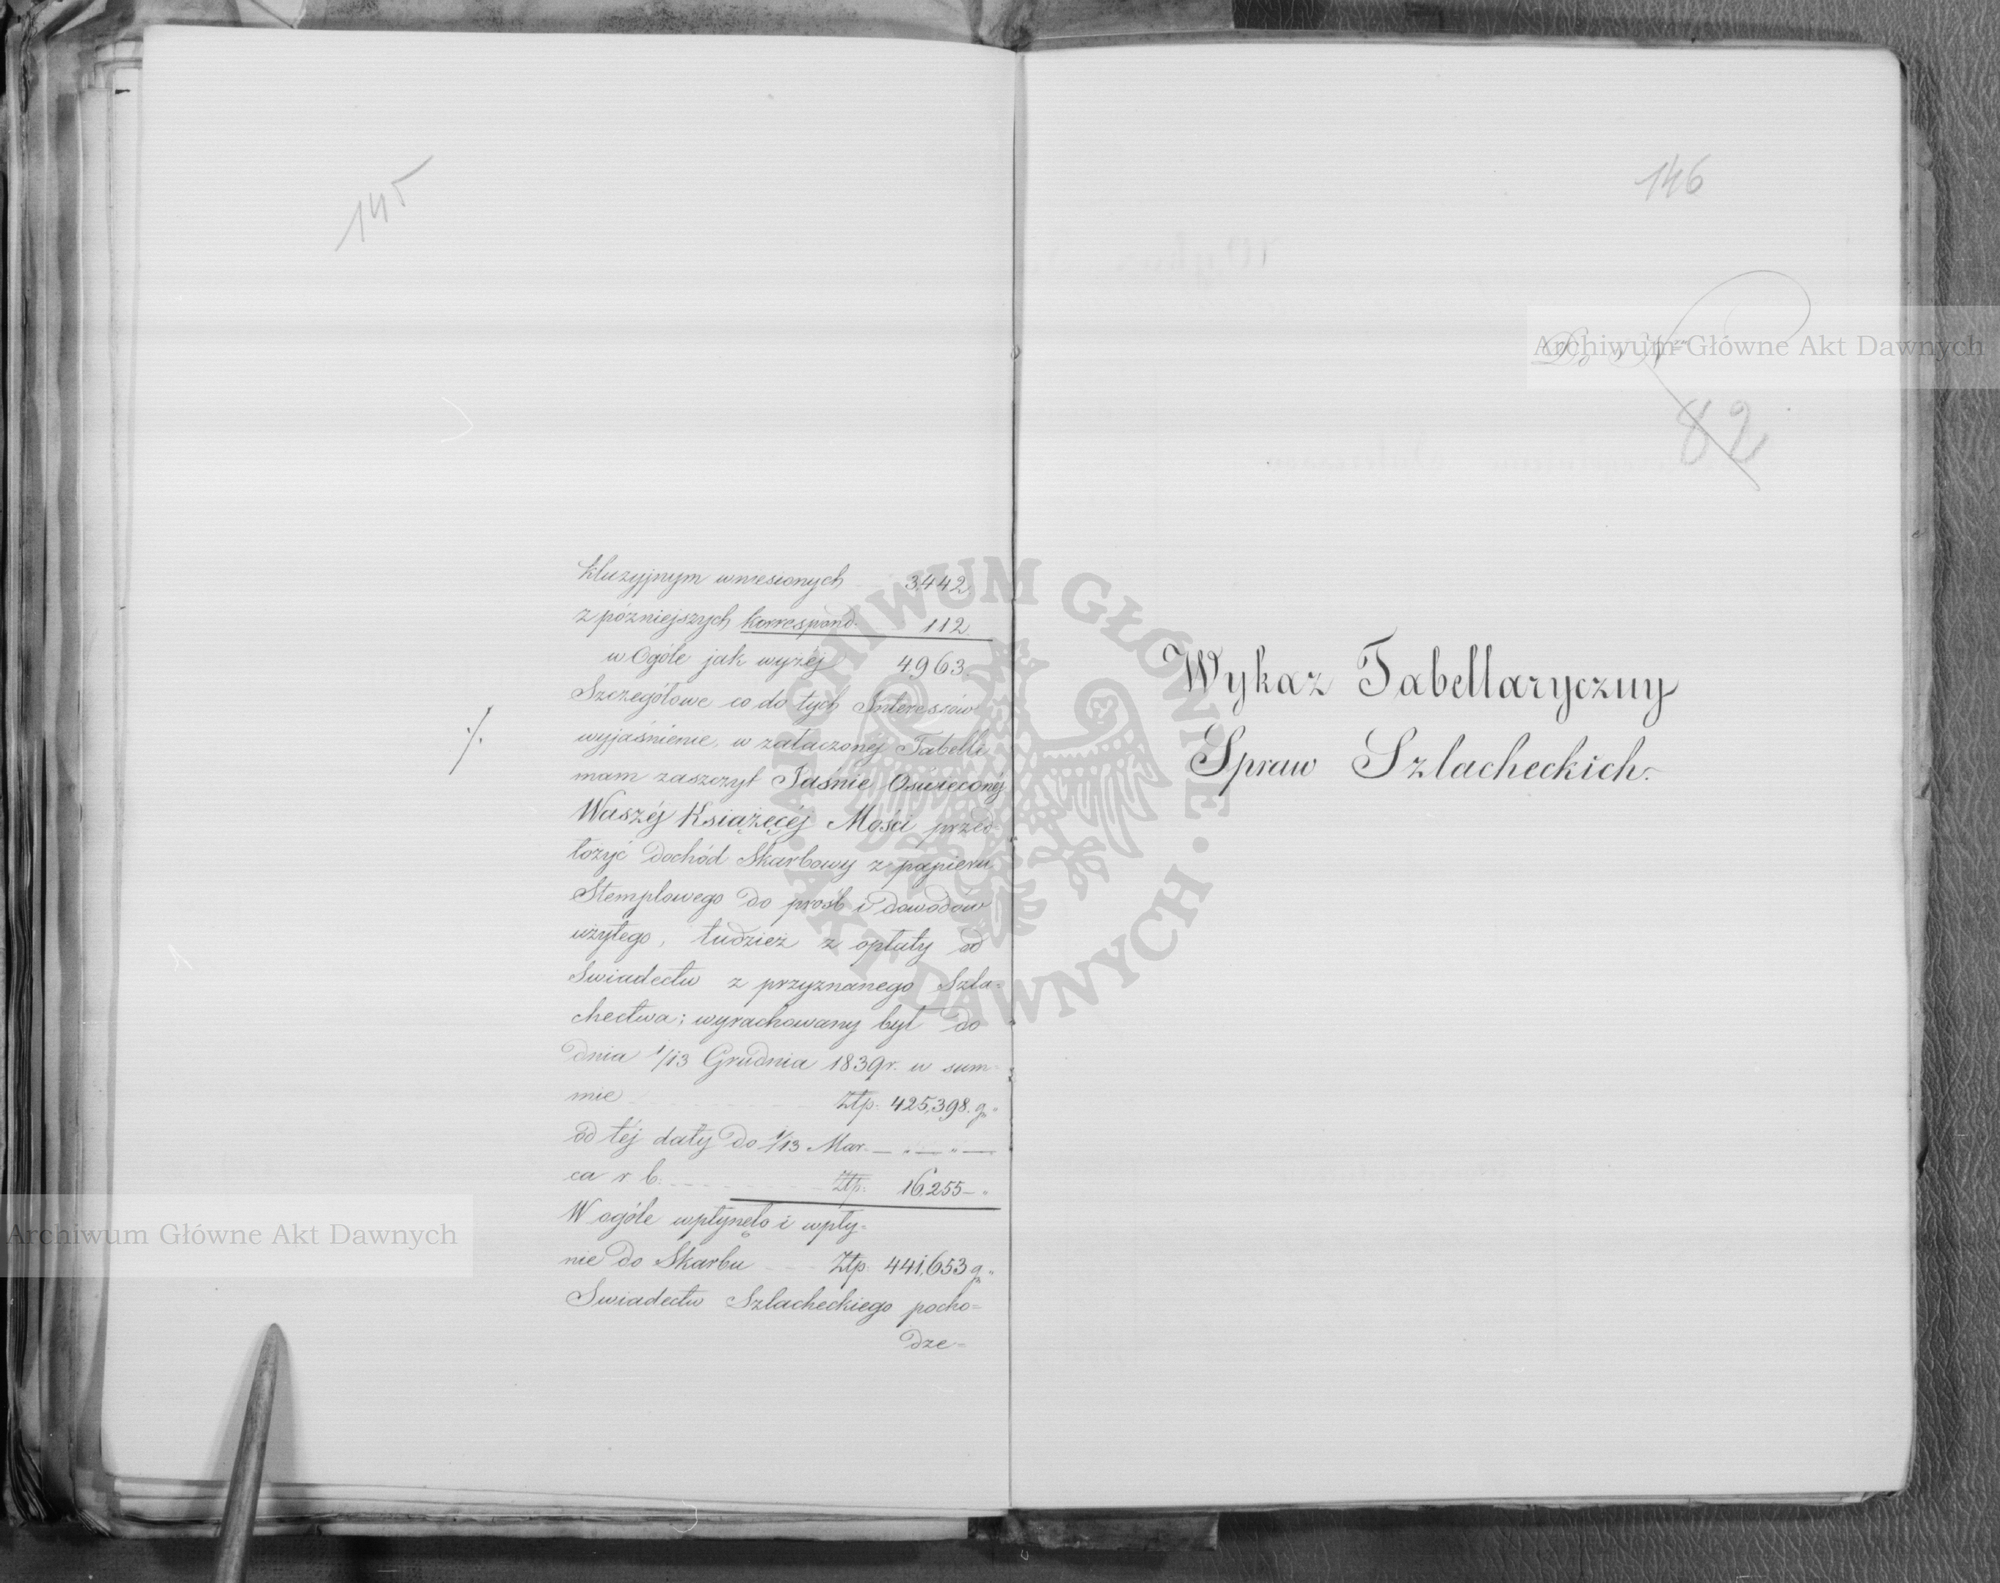 145
kluzyjnym wniesionych 3442.
z późniejszych korrespond. 112
w Ogóle jak wyżej 4963.
Szczegółowe co do tych Interessów
./.
wyjaśnienie, w załączonéj Tabelli
mam zaszczyt Jaśnie Oświeconéj
Waszéj Książęcéj Mości przed-
łożyć dochód Skarbowy z papieru
Stemplowego do próśb i dowodów
użytego, tudzież z opłaty od
Swiadectw z przyznanego Szla-
chectwa; wyrachowany był do
dnia 1/13 Grudnia 1839 r. w sum-
mie Złp. 425,398. g "
od téj daty do 1/13 Mar-
ca r b. Złp. 16,255 "
W ogóle wpłynęło i wpły-
nie do Skarbu Złp. 441,653 g "
Swiadectw Szlacheckiego pocho-
dze-
146
Do Nr
82
Wykaz Tabellaryczny
Spraw Szlacheckich.
Archiwum Główne Akt Dawnych
Archiwum Główne Akt Dawnych
ARCHIWUM GŁÓWNE · AKT DAWNYCH ·